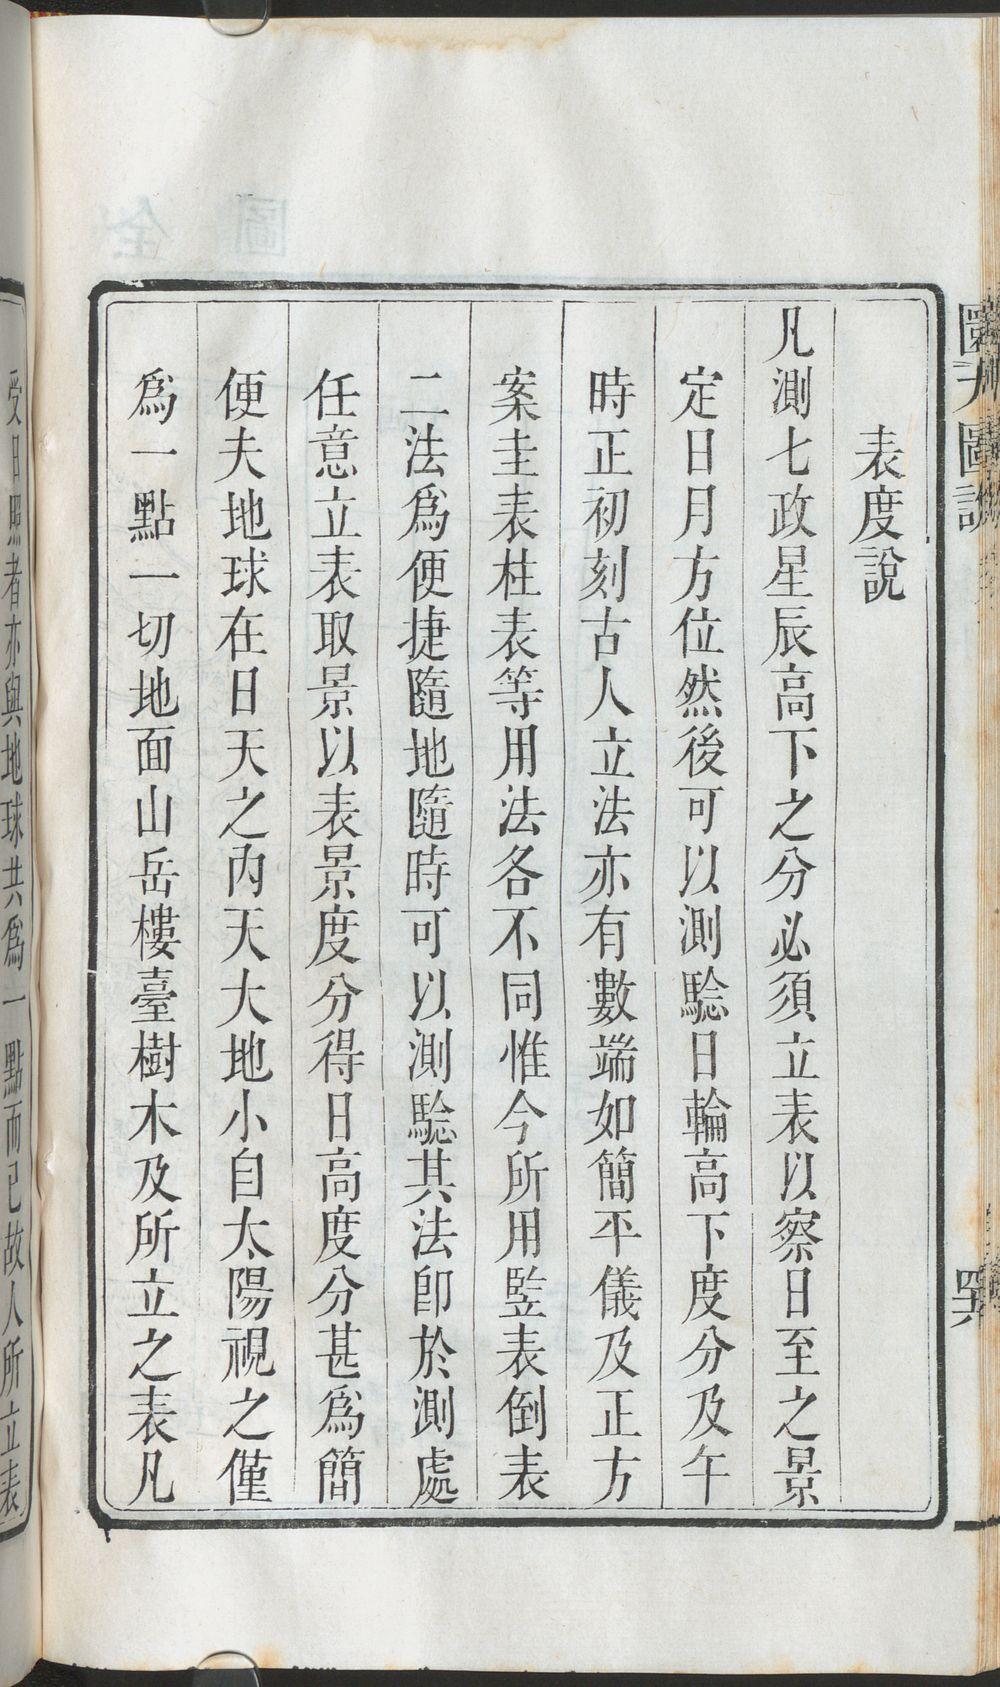 表度說
凡測七政星辰高下之分必須立表以察日至之景
定日月方位然後可以測騐日輪高下度分及午
時正初刻古人立法亦有數端如簡平儀及正方
案圭表柱表等用法各不同惟今所用監表倒表
二法爲便捷隨地隨時可以測騐其法卽於測處
任意立表取景以表景度分得日高度分甚爲簡
便夫地球在日天之內天大地小自太陽視之僅
爲一點一切地面山岳樓臺樹木及所立之表凡
受日照者亦與地球共爲一點而已故人所立表